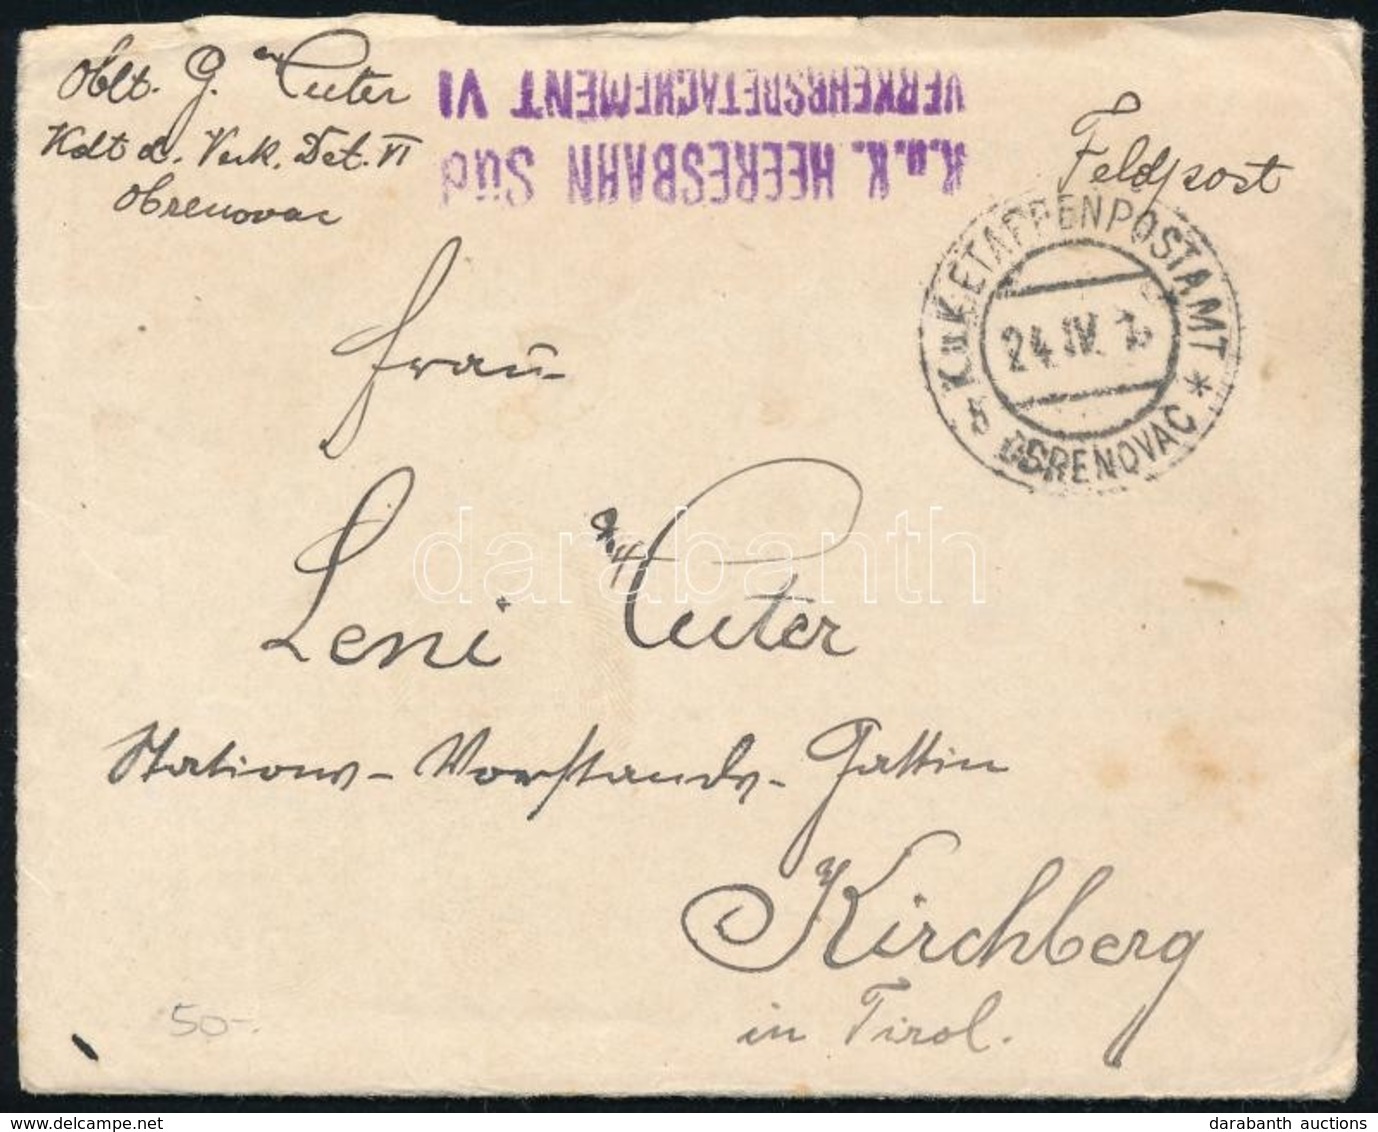 Oblt. G. Reuter
Kdt d. Verk. Det. VI
Obrenovac
K.u.K. HEERESBAHN Süd
VERKEHRSDETACHEMENT VI
Feldpost
K.u.K. ETAPPENPOSTAMT
24.IV.
* OBRENOVAC *
Frau
Leni Reuter
Stations-Vorstands-Gattin
Kirchberg
in Tirol.
50-.
darabanth
darabanth auctions